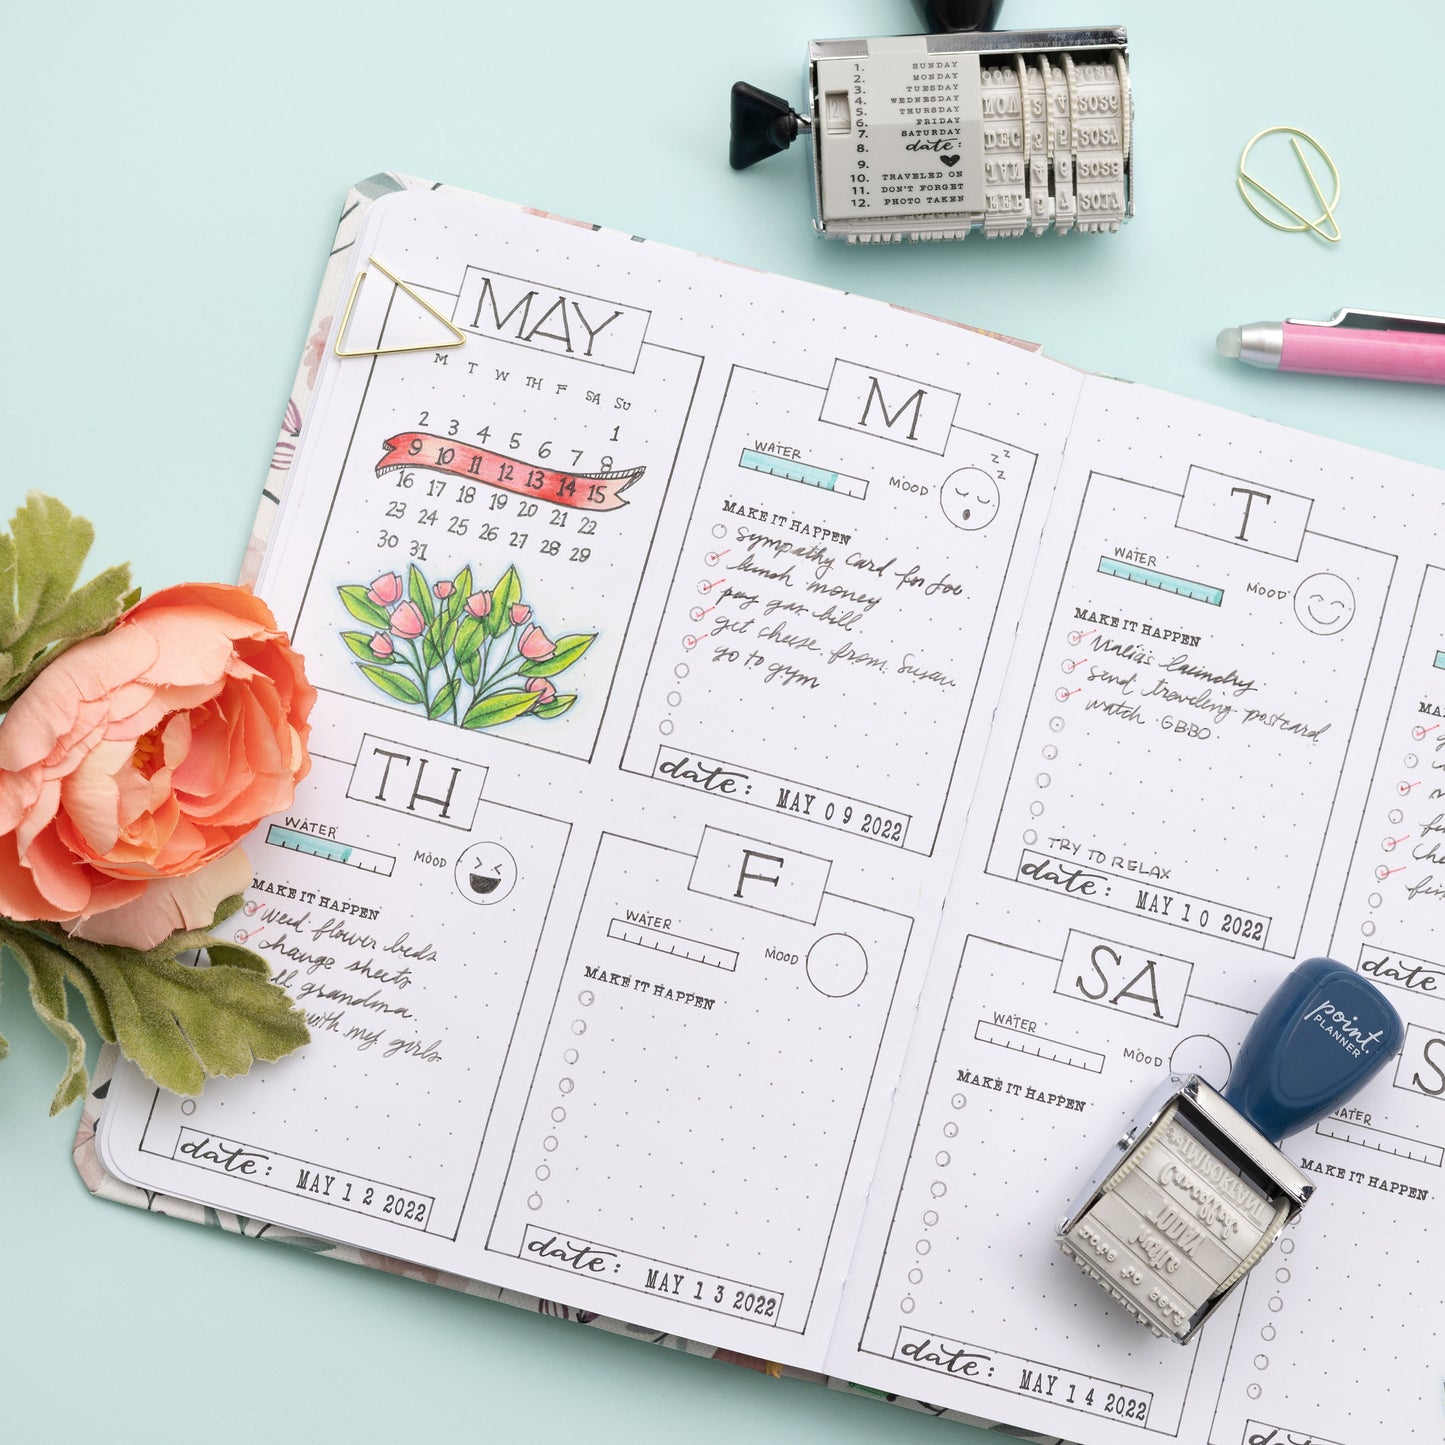 1. SUNDAY
2. MONDAY
3. TUESDAY
4. WEDNESDAY
5. THURSDAY
6. FRIDAY
7. SATURDAY
8. date:
9. ♥
10. TRAVELED ON
11. DON'T FORGET
12. PHOTO TAKEN
MAY
M T W TH F SA SU
1
2 3 4 5 6 7 8
9 10 11 12 13 14 15
16 17 18 19 20 21 22
23 24 25 26 27 28 29
30 31
M
WATER
MOOD
z z z
MAKE IT HAPPEN
Sympathy card for Joe.
lunch money
pay gas bill
get cheese from Susan
go to gym
date: MAY 09 2022
T
WATER
MOOD
MAKE IT HAPPEN
laundry
send traveling postcard
watch GBBO
TRY TO RELAX
date: MAY 10 2022
date:
TH
WATER
MOOD
MAKE IT HAPPEN
weed flower beds
change sheets
grandma
with my girls
date: MAY 12 2022
F
WATER
MOOD
MAKE IT HAPPEN
date: MAY 13 2022
SA
WATER
MOOD
MAKE IT HAPPEN
date: MAY 14 2022
S
WATER
MAKE IT HAPPEN
point
PLANNER